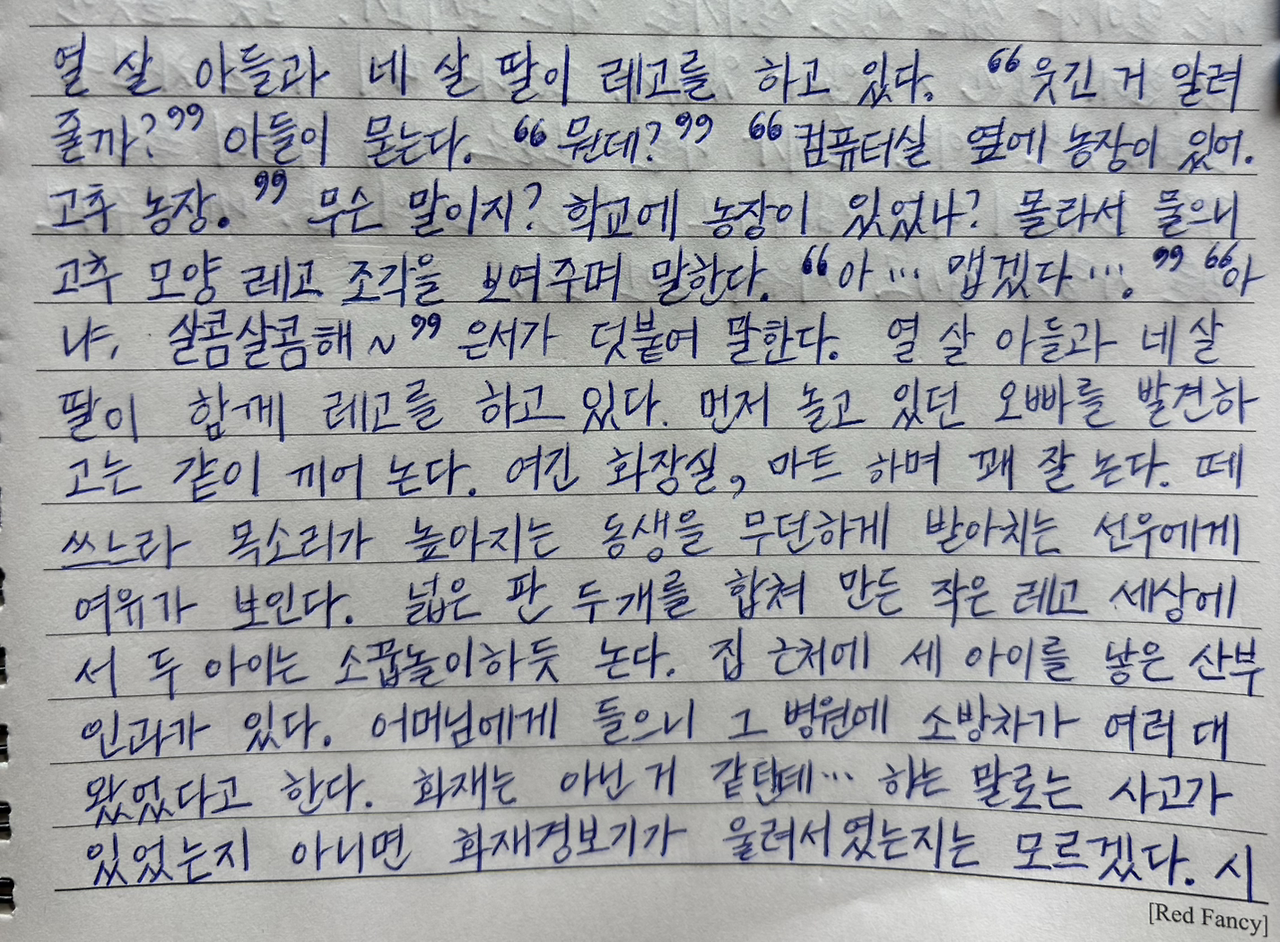 열 살 아들과 네 살 딸이 레고를 하고 있다. “웃긴 거 알려
줄까?” 아들이 묻는다. “뭔데?” “컴퓨터실 옆에 농장이 있어.
고추 농장.” 무슨 말이지? 학교에 농장이 있었나? 몰라서 물으니
고추 모양 레고 조각을 보여주며 말한다. “아… 맵겠다….” “아
냐, 살콤살콤해~” 은서가 덧붙여 말한다. 열 살 아들과 네 살
딸이 함께 레고를 하고 있다. 먼저 놀고 있던 오빠를 발견하
고는 같이 끼어 논다. 여긴 화장실, 마트 하며 꽤 잘 논다. 떼
쓰느라 목소리가 높아지는 동생을 무던하게 받아치는 선우에게
여유가 보인다. 넓은 판 두 개를 합쳐 만든 작은 레고 세상에
서 두 아이는 소꿉놀이하듯 논다. 집 근처에 세 아이를 낳은 산부
인과가 있다. 어머님에게 들으니 그 병원에 소방차가 여러 대
왔었다고 한다. 화재는 아닌 거 같던데… 하는 말로는 사고가
있었는지 아니면 화재경보기가 울려서였는지는 모르겠다. 시
[Red Fancy]